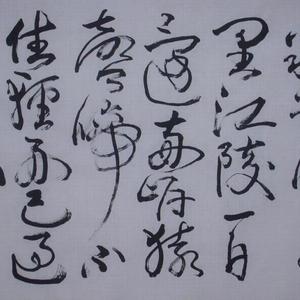 里江陵一日
還兩岸猿
聲啼不
住輕舟已過